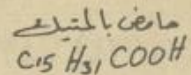 حامض بالمتيك
C15 H31 COOH